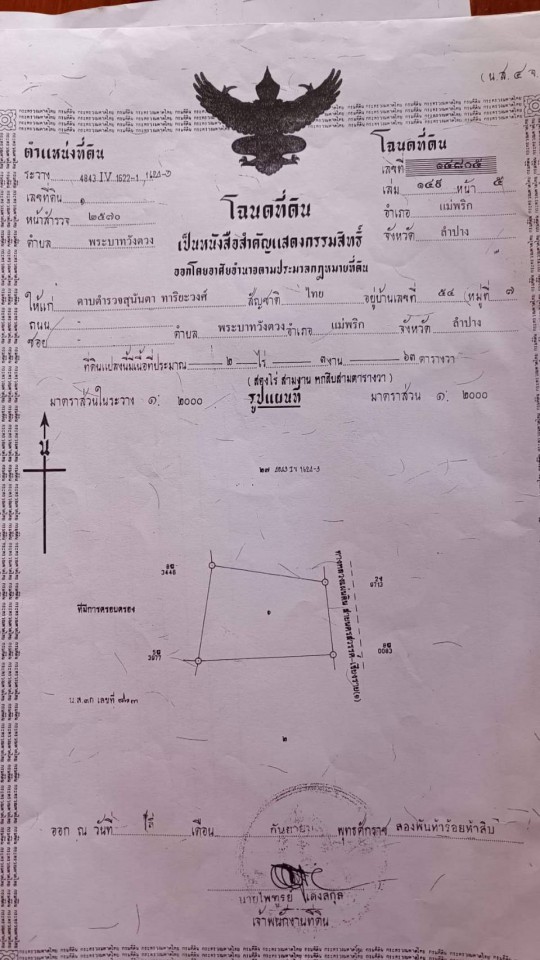 (น.ส. ๔ จ
ตำแหน่งที่ดิน
ระวาง 4843 IV 1622-1
เลขที่ดิน ๑
หน้าสำรวจ ๒๕๗๐
ตำบล พระบาทวังตวง
โฉนดที่ดิน
เลขที่ ๑๔๘๐๕
เล่ม ๑๔๙ หน้า ๕
อำเภอ แม่พริก
จังหวัด ลำปาง
โฉนดที่ดิน
เป็นหนังสือสำคัญแสดงกรรมสิทธิ์
ออกโดยอาศัยอำนาจตามประมวลกฎหมายที่ดิน
ให้แก่ ดาบตำรวจสุนันตา ทาริยะวงศ์ สัญชาติ ไทย อยู่บ้านเลขที่ ๕๔ หมู่ที่ ๗
ถนน -
ซอย - ตำบล พระบาทวังตวง อำเภอ แม่พริก จังหวัด ลำปาง
ที่ดินแปลงนี้มีเนื้อที่ประมาณ ๒ ไร่ ๓ งาน ๖๓ ตารางวา
(สองไร่ สามงาน หกสิบสามตารางวา)
มาตราส่วนในระวาง ๑: ๒๐๐๐ รูปแผนที่ มาตราส่วน ๑: ๒๐๐๐
น
3446
6713
ที่มีการครอบครอง
๑
3677
0063
น.ส.๓ก เลขที่
๒
ออก ณ วันที่ เดือน กันยายน พุทธศักราช สองพันห้าร้อยห้าสิบ
นายไพฑูรย์ แดงสกุล
เจ้าพนักงานที่ดิน